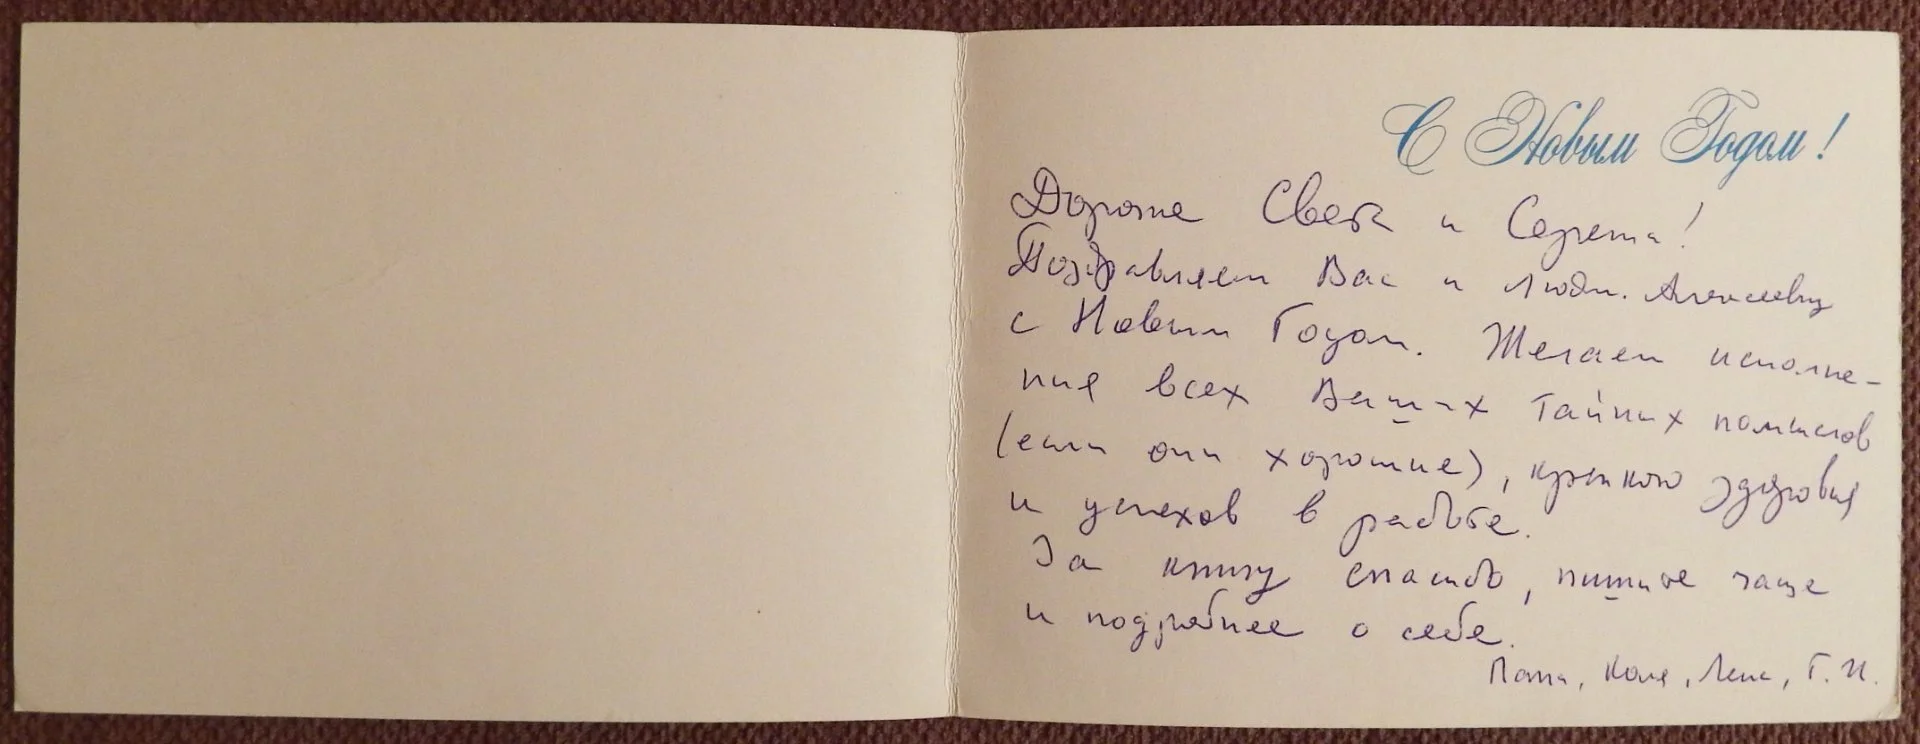 С Новым Годом!
Дорогие Света и Сережа!
Поздравляем Вас и Люди. Алексеевну
с Новым Годом. Желаем исполне-
ния всех Ваших тайных помыслов
(если они хорошие), крепкого здоровья
и успехов в работе.
За книгу спасибо, пишите чаще
и подробнее о себе.
Папа, Коля, Лена, Г. И.